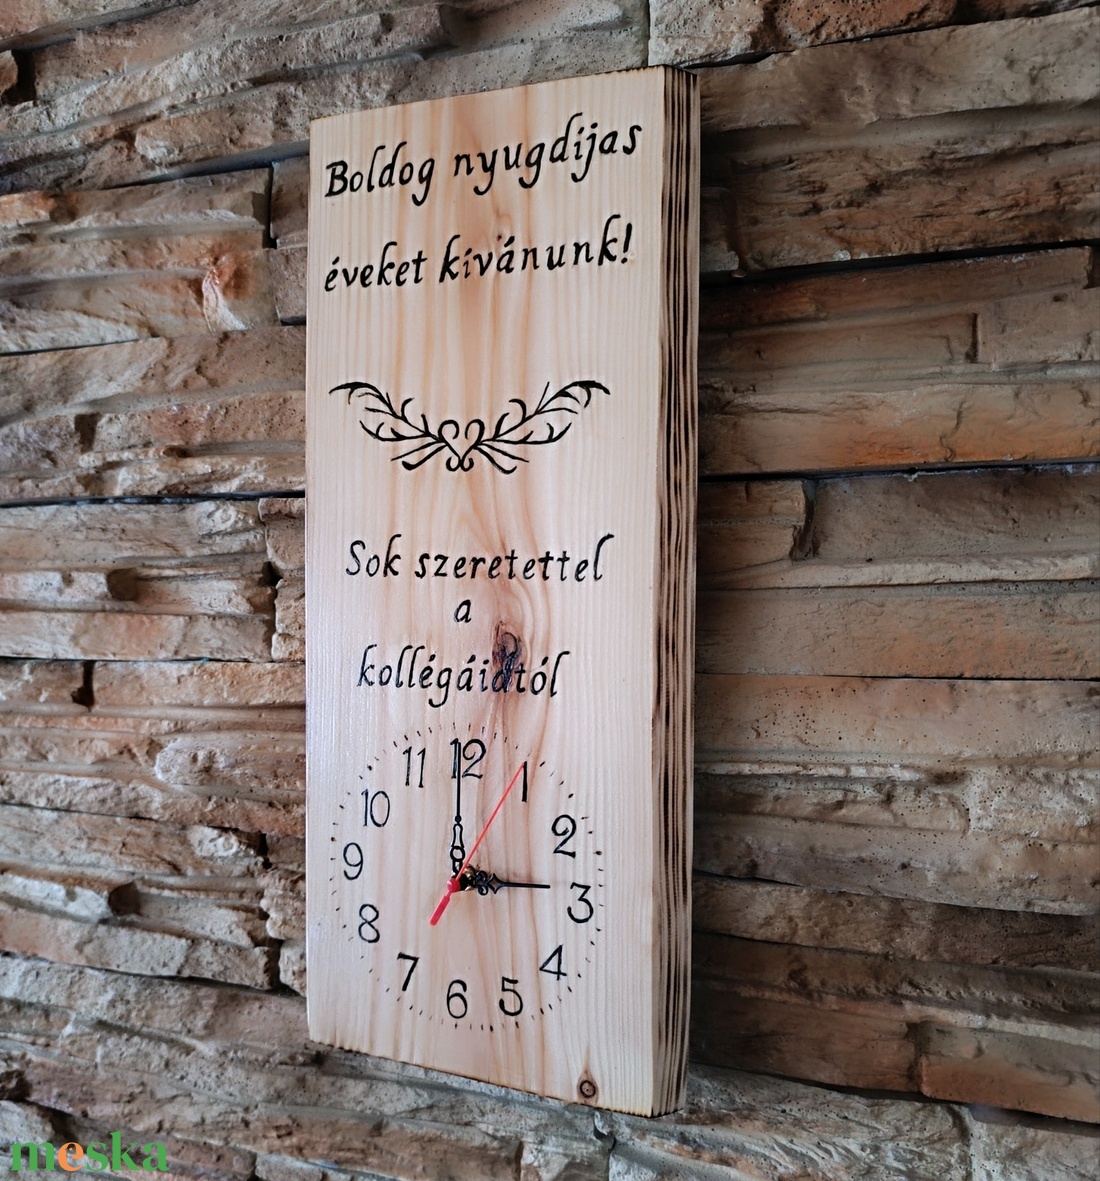 Boldog nyugdíjas
éveket kívánunk!
Sok szeretettel
a
kollégáidtól
11 12 1
10 2
9 3
8 4
7 6 5
meska